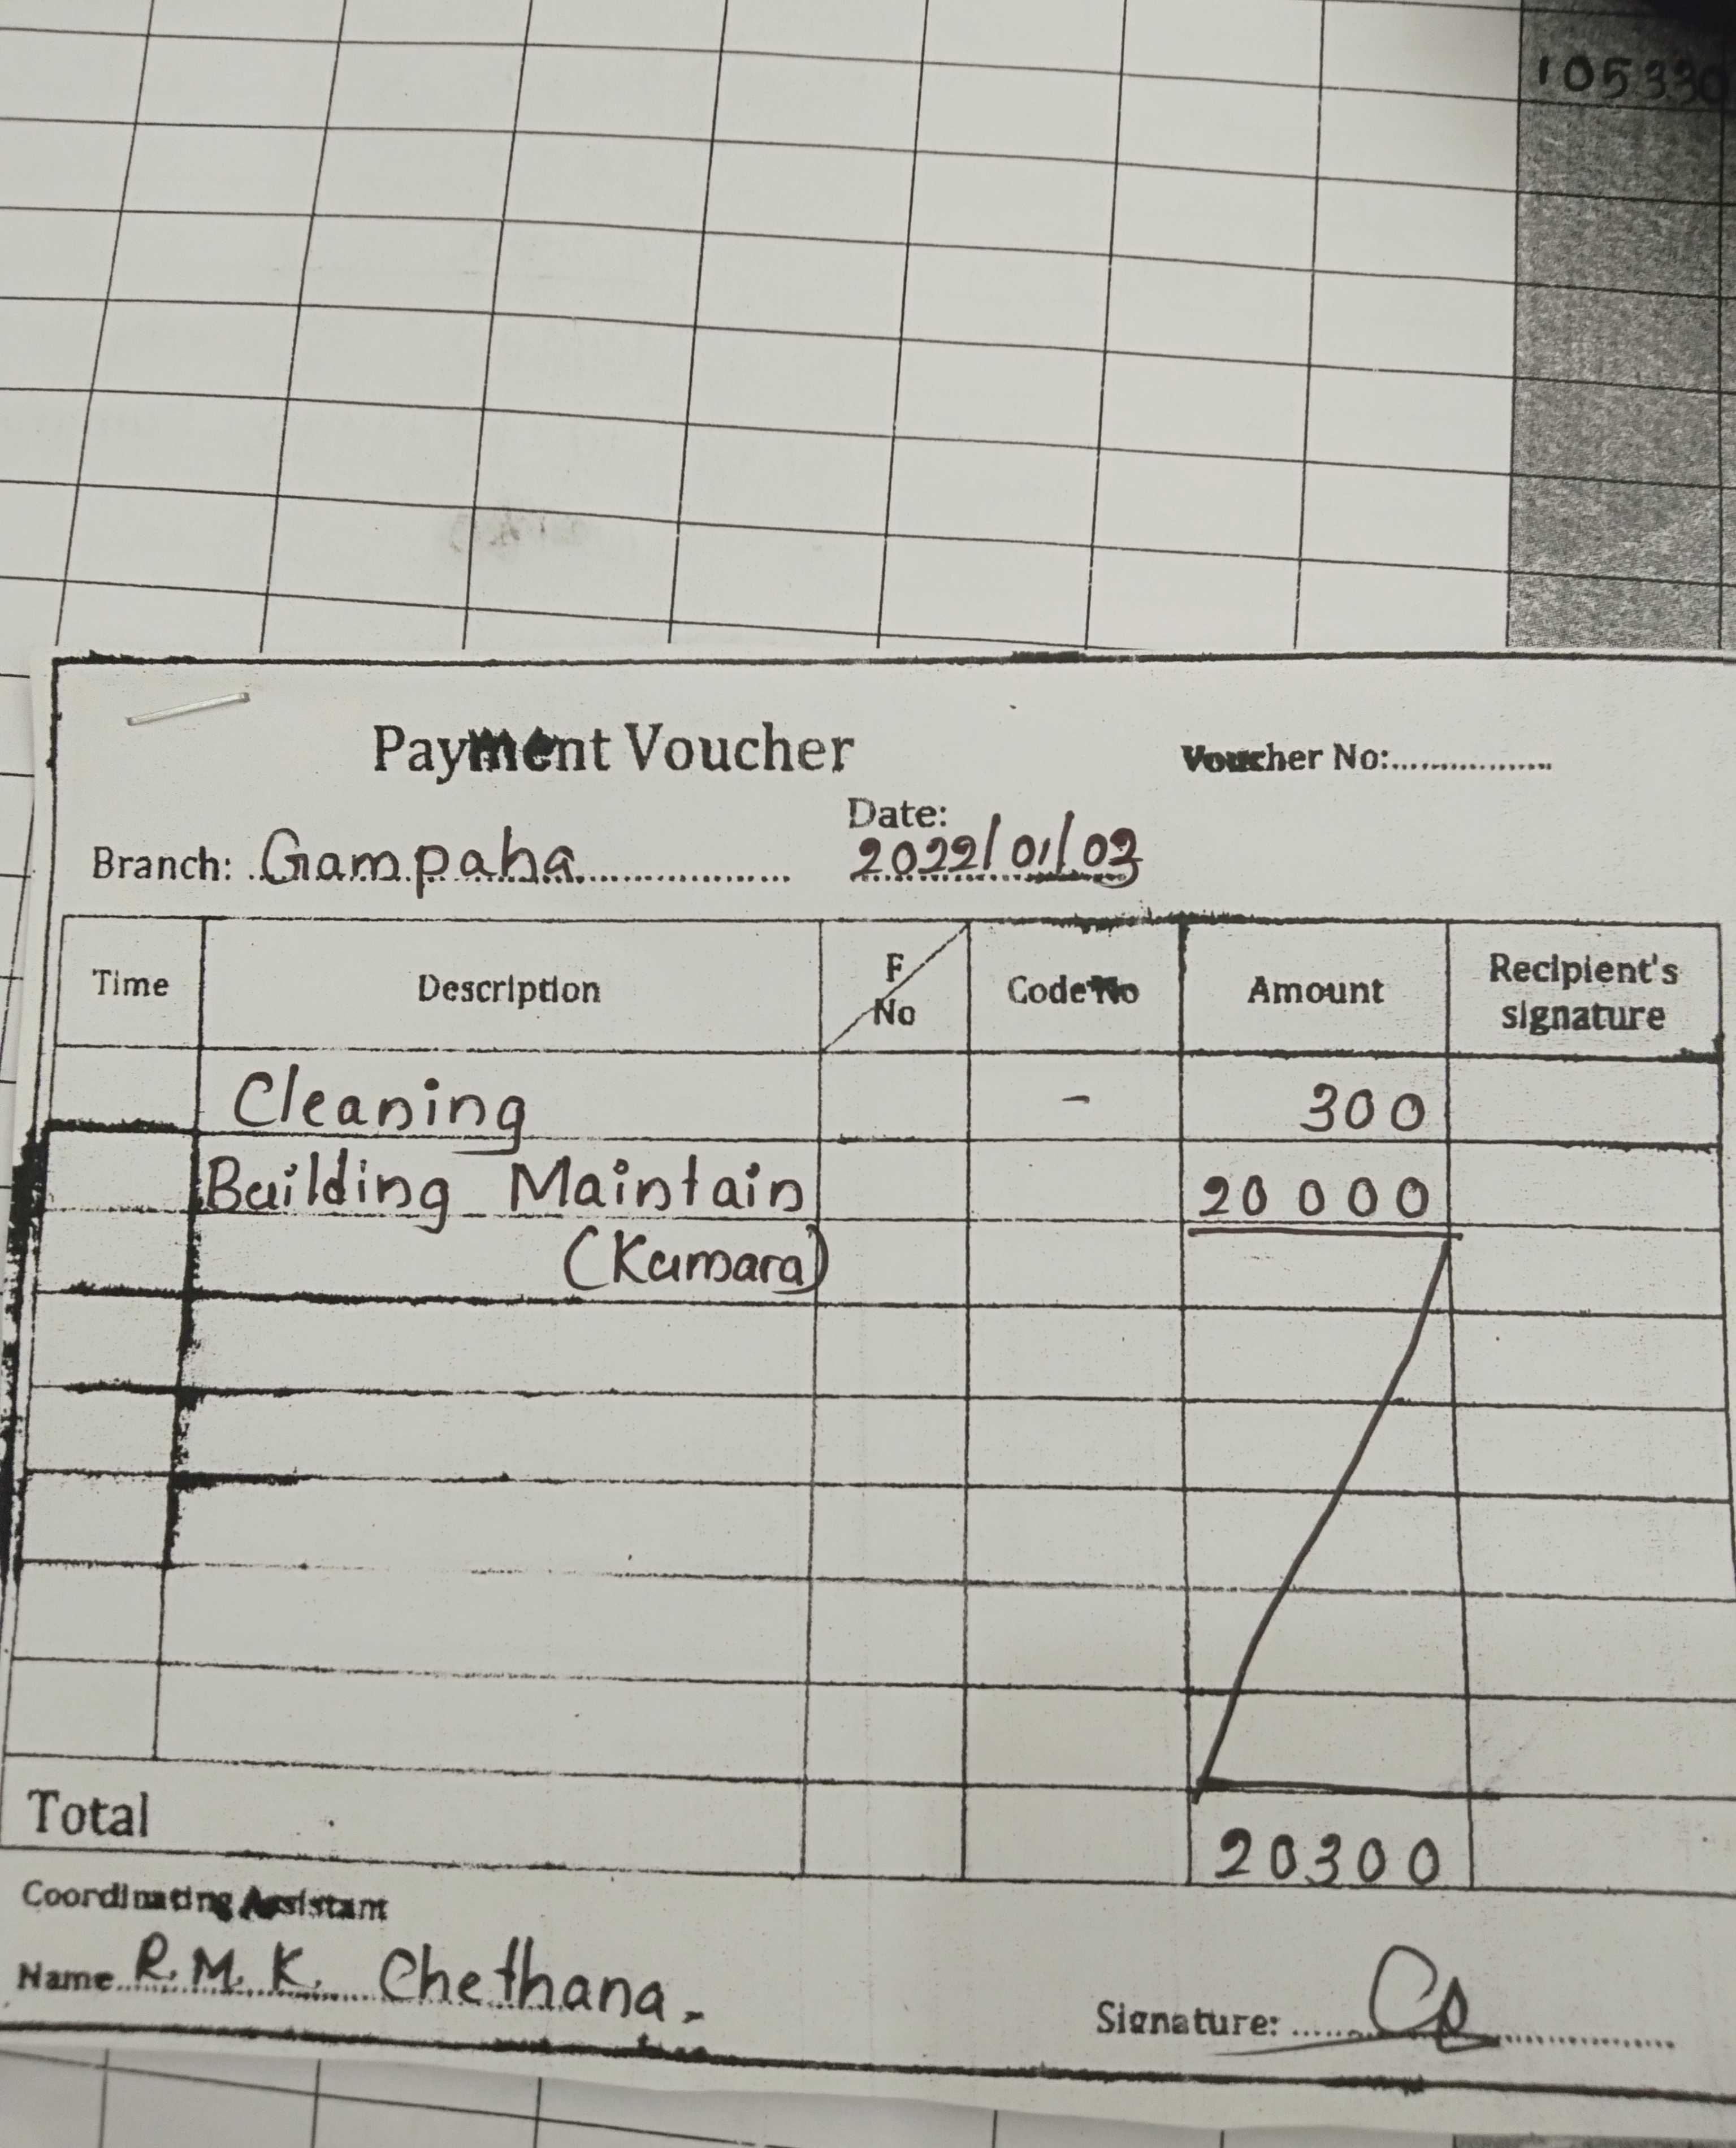 105330
Payment Voucher
Voucher No:.................
Date:
Branch: Gampaha
2022/01/03
Time
Description
F
No
Code No
Amount
Recipient's
signature
Cleaning - 300
Building Maintain 20 000
(Kumara)
Total
20300
Coordinating Assistant
Name R.M.K. Chethana.
Signature: